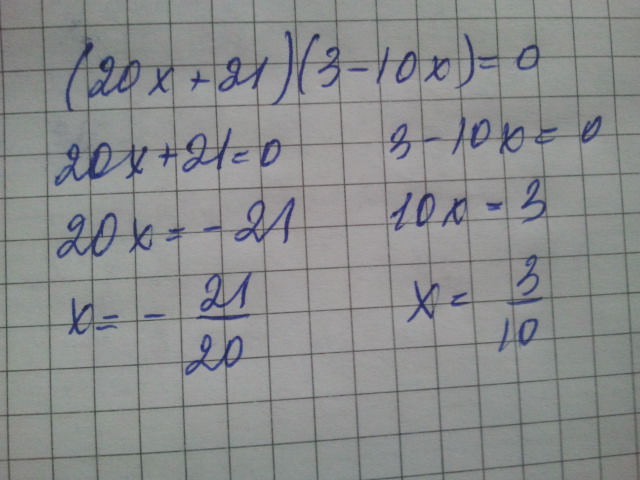 (20x+21)(3-10x)=0
20x+21=0 3-10x=0
20x=-21 10x=3
x=-21/20 x=3/10